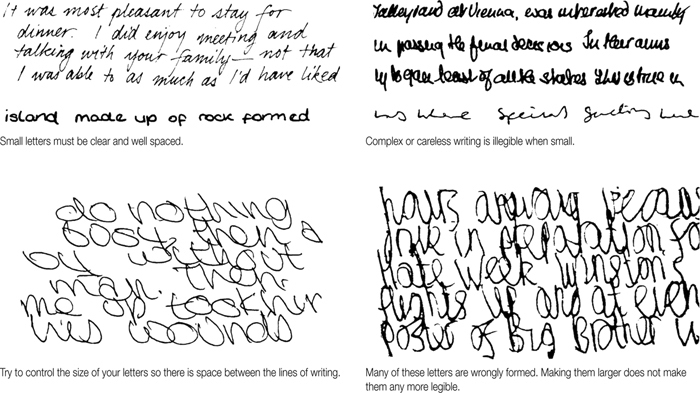 It was most pleasant to stay for
dinner. I did enjoy meeting and
talking with your family — not that
I was able to as much as I'd have liked
island made up of rock formed
Small letters must be clear and well spaced.
Talleyrand at Vienna, was interested mainly
in passing the final decisions In their arms
of all the states This is true in
Complex or careless writing is illegible when small.
do nothing
boost then a
out without
map. then
me op took hir
his wounds
Try to control the size of your letters so there is space between the lines of writing.
hours anyway because
drive in preparation fo
Hate Week Winston s
flights up and at even
poster of Big Brother w
Many of these letters are wrongly formed. Making them larger does not make
them any more legible.